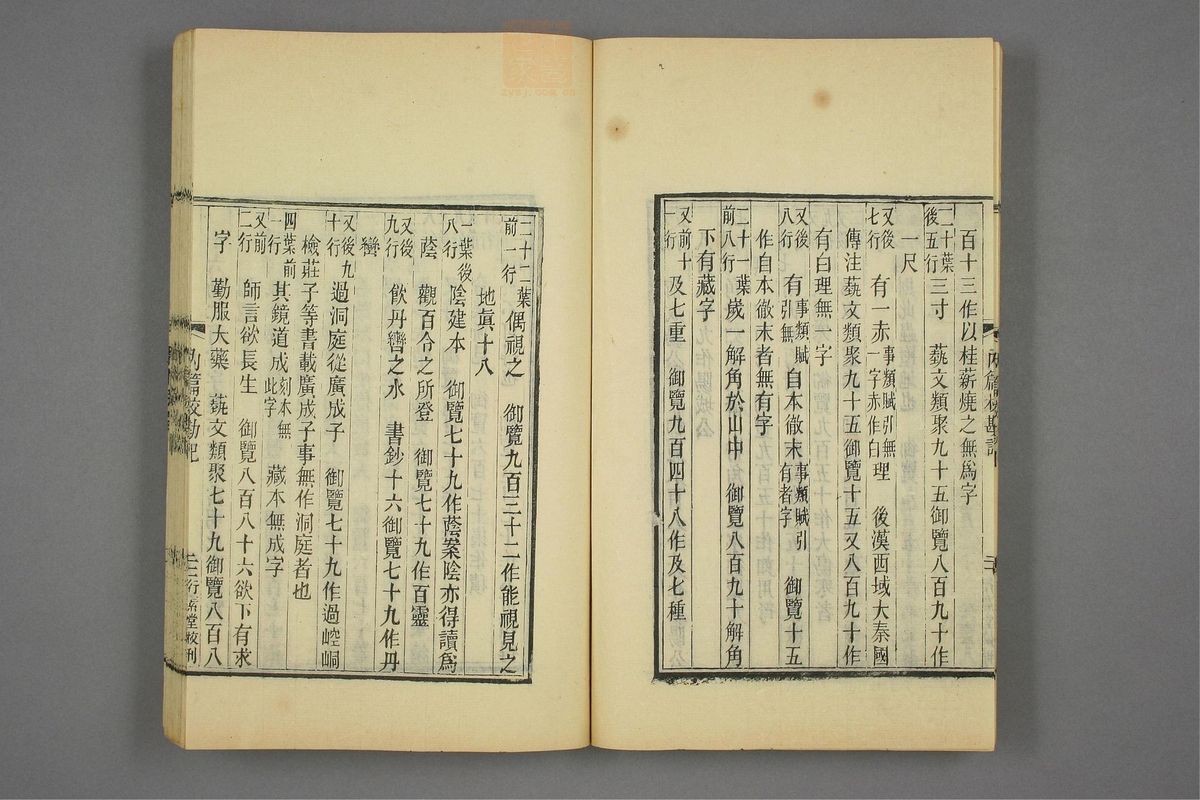 百十三作以桂薪燒之無爲字
二十葉後五行三寸　藝文類聚九十五御覽八百九十作
一尺
又後七行　有一赤事類賦引無一字赤作白理　後漢西域大秦國
傳注藝文類聚九十五御覽十五又八百九十作
有白理無一字
又後八行　有事類賦引無自本徹末事類賦引有者字　御覽十五
作自本徹末者無有字
二十一葉前八行歲一解角於山中　御覽八百九十解角
下有藏字
又前十一行　及七重　御覽九百四十八作及七種
二十二葉前一行偶視之　御覽九百三十二作能視見之
地眞十八
一葉後八行陰建本　御覽七十九作蔭案陰亦得讀爲
蔭　觀百令之所登　御覽七十九作百靈
又後九行　飲丹轡之水　書鈔十六御覽七十九作丹
巒
又後九十行過洞庭從廣成子　御覽七十九作過崆峒
檢莊子等書載廣成子事無作洞庭者也
四葉前一行其鏡道成刻本無此字　藏本無成字
又前二行　師言欲長生　御覽八百八十六欲下有求
字　勤服大藥　藝文類聚七十九御覽八百八
內篇校勘記
行素堂校刊